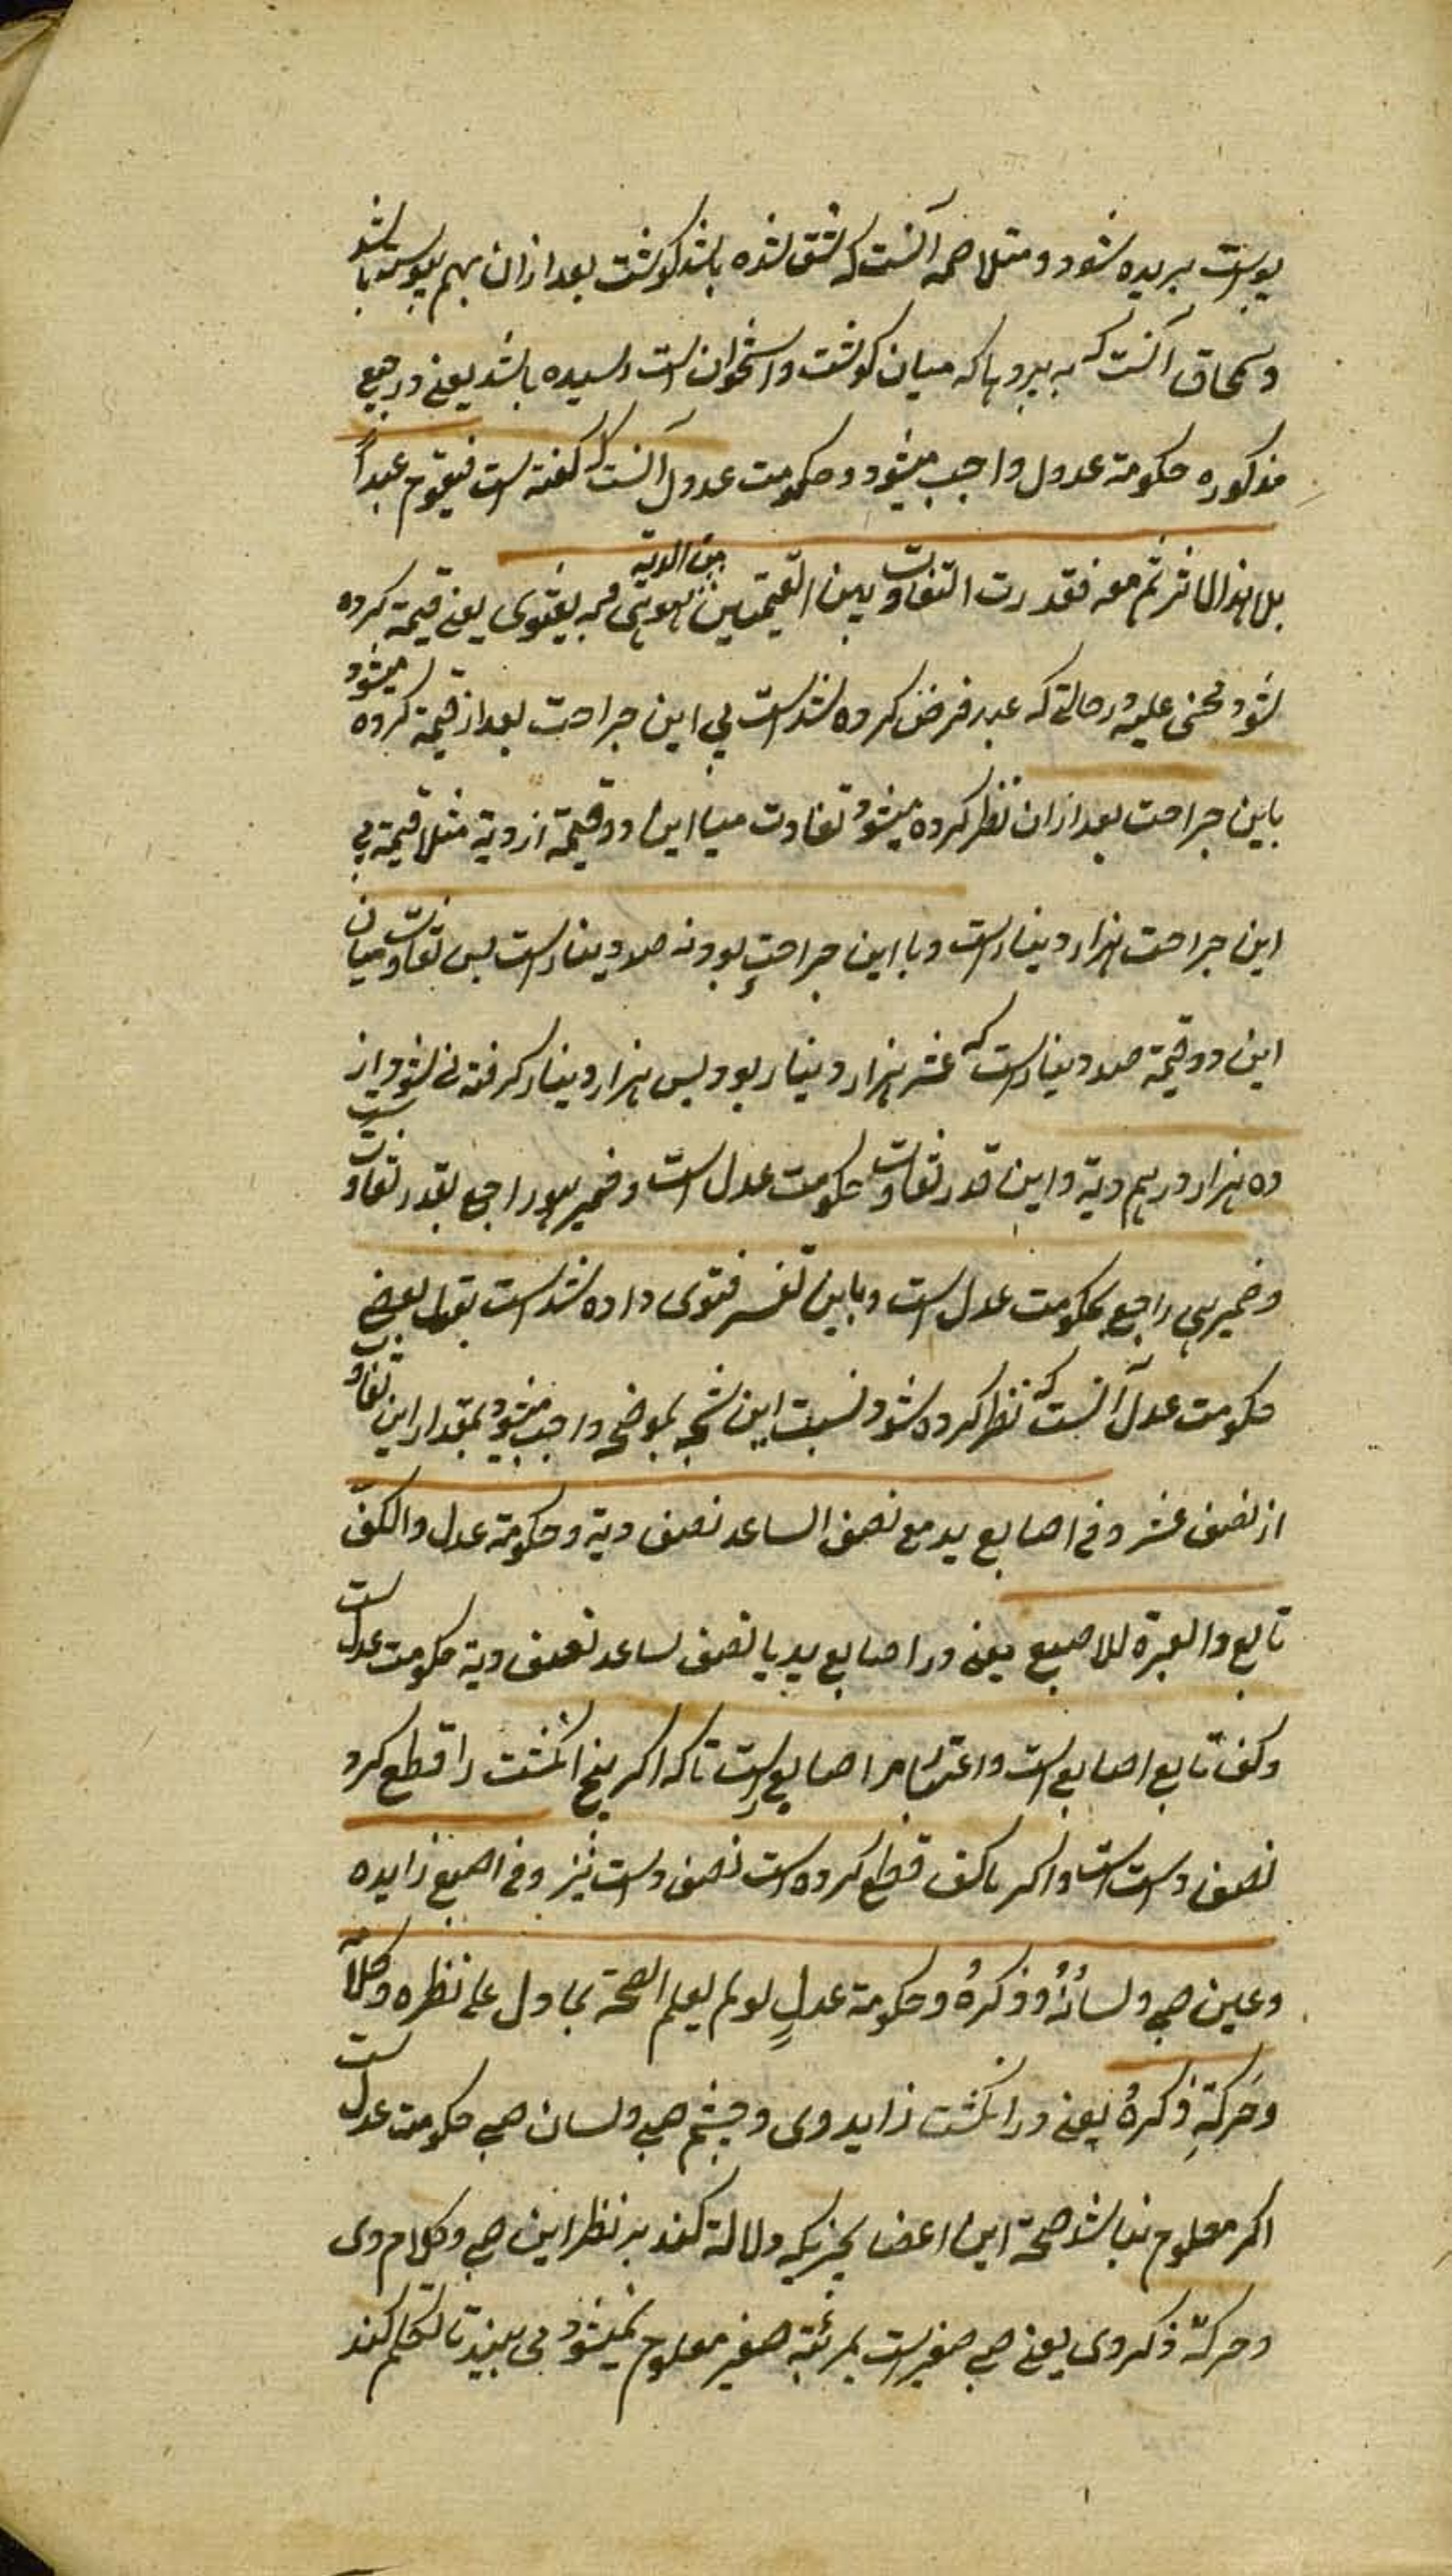 پوست بریده شود و متلاحمه آنست که شق شده باشد کوشت بعد ازان بهم پیوسته باشد
و سمحاق آنست که به پردها که میان کوشت و استخوان است رسیده باشد یعنی در جمیع
مذکوره حکومة عدول واجب میشود و حکومت عدول آنست که کفته است فیقوم عبداً
بلا هذا الاثر ثم معه فقدرت التفاوت بین القیمتین من الدیة هو هی به یفتوی یعنی قیمة کرده
شود مجنی علیه در حالتی که عبد فرض کرده شده است بی این جراحت بعد از قیمة کرده میشود
باین جراحت بعد ازان نظر کرده میشود تفاوت میا این دو قیمة از دیة مثلا قیمة بی
این جراحت هزار دینار است و با این جراحت بود نه صد دینار است پس تفاوت میان
این دو قیمة صد دینار است که عشر هزار دینار بود پس هزار دینار کرفته شود از
ده هزار درهم دیة و این قدر تفاوت حکومت عدل است و ضمیر هو راجع بقدر تفاوت
و ضمیر هی راجع بحکومت عدل است و باین تفسر فتوی داده شده است بقول بعضی
حکومت عدل آنست که نظر کرده شود نسبت این شجه بموضحه واجب میشود بمقدار این تفاوت
از نصف عشر و فی اصابع ید مع نصف الساعد نصف دیة و حکومة عدل و الکف
تابع و العبرة للاصبع یعنی در اصابع ید یا نصف ساعد نصف دیة حکومت عدل است
و کف تابع اصابع است و اعتبار مر اصابع است تا که اکر پنج انکشت را قطع کرد
نصف دیت است و اکر با کف قطع کرده است نصف دیت نیز و فی اصبع زایده
و عین صبی و لسانُهُ و ذکرُهُ و حکومة عدلٍ لو لم یعلم الصحة بما دل علی نظره و کلامه
و حرکةِ ذکرهُ یعنی در انکشت زاید وی و چشم صبی و لسان صبی حکومت عدل است
اکر معلوم نباشد صحة این اعضا بچیزیکه دلالة کند بر نظر این صبی و کلام وی
و حرکة ذکر وی یعنی صبی صغیر است بمرتبة صغیر معلوم نمیشود می بیند تا تکلم کند